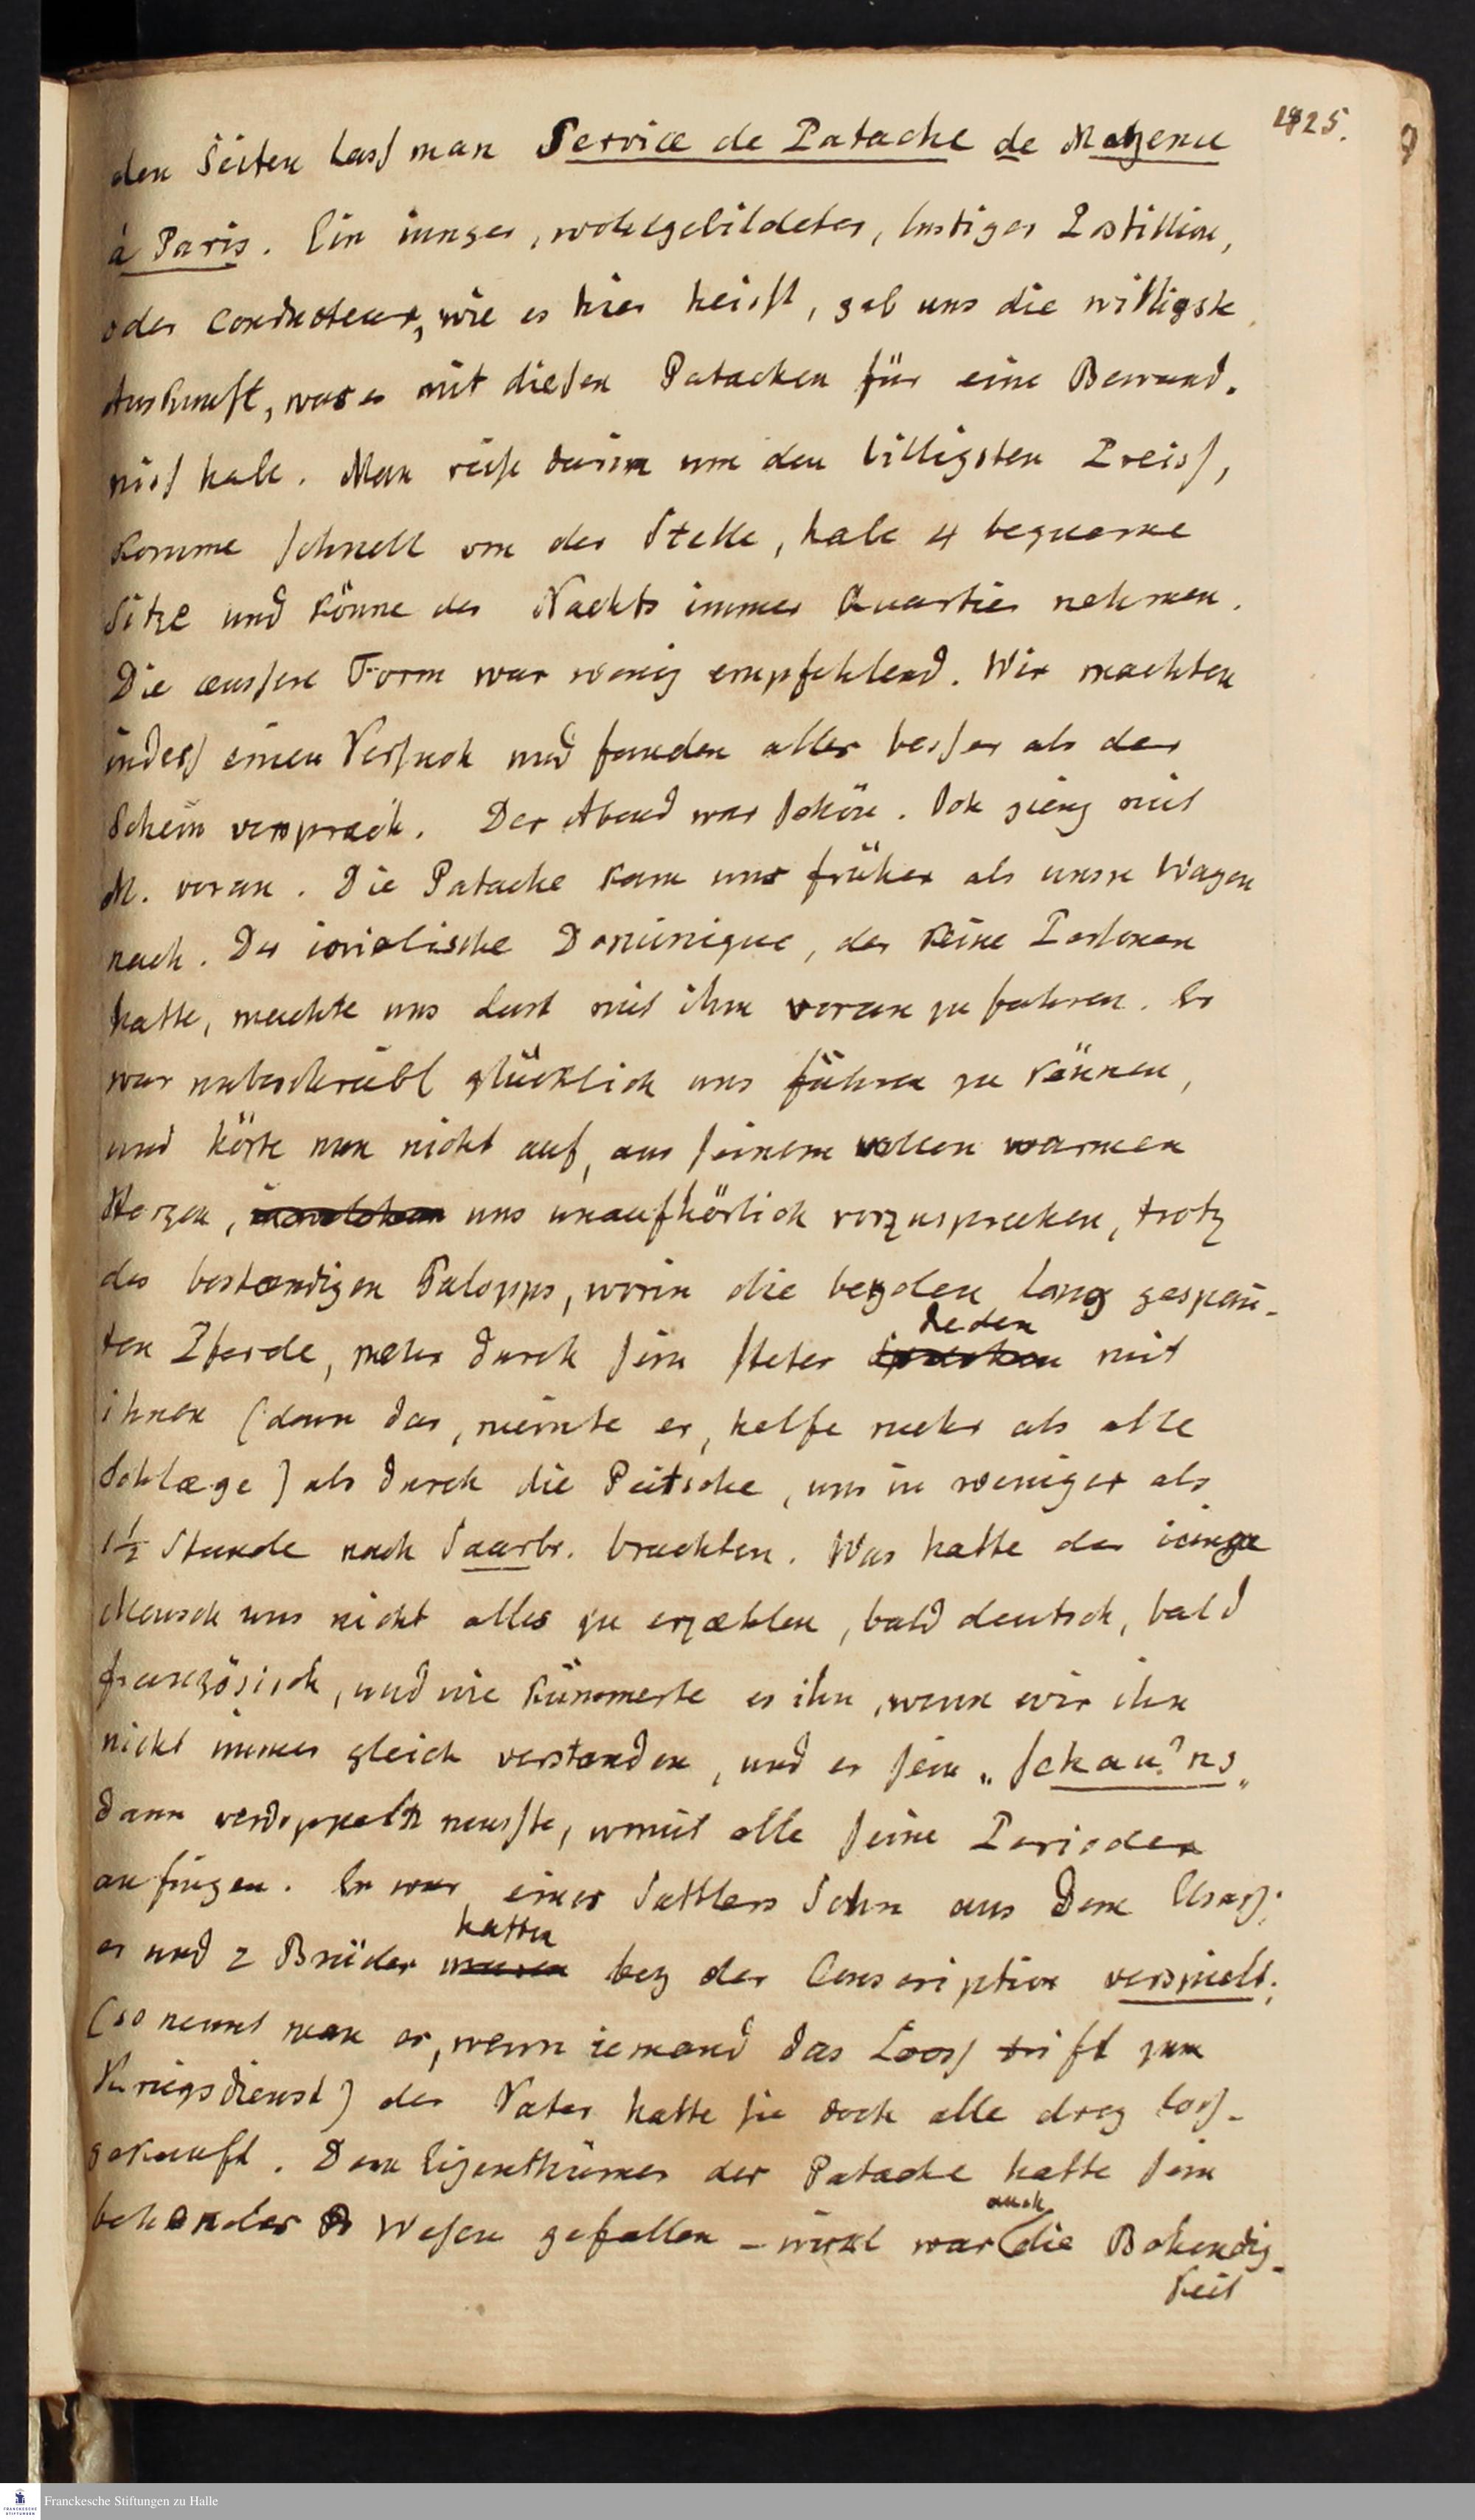 1825.
9
den Seiten lass man Service de Patache de Mayence
à Paris. Ein iunger, wohlgebildeter, lustiger Postillion,
oder Conducteur, wie es hier heisst, gab uns die willigste
Auskunft, was es mit diesen Patachen für eine Bewand-
niss habe. Man reise darin um den billigsten Preiss,
komme schnell von der Stelle, habe 4 bequeme
Sitze und könne des Nachts immer Quartier nehmen.
Die æussere Form war wenig empfehlend. Wir machten
indess einen Versuch und fanden alles besser als der
Schein versprach. Der Abend war schön. Ich gieng mit
M. voran. Die Patache kam uns früher als unsre Wagen
nach. Der iovialische Dominique, der keine Personen
hatte, machte uns Lust mit ihm voran zu fahren. Er
war unbeschreibl glücklich uns führen zu können,
und hörte nun nicht auf, aus seinem vollen warmen
Herzen, uns unaufhörlich vorzusprechen, trotz
des bestændigen Galopps, worin die beyden lang gespan-
ten Pferde, mehr durch sein stetes Reden mit
ihnen (denn das, meinte er, helfe mehr als alle
Schlæge) als durch die Peitsche, uns in weniger als
1½ Stunde nach Saarbr. brachten. Was hatte der iunge
Mensch uns nicht alles zu erzæhlen, bald deutsch, bald
französisch, und nie kümmerte es ihn, wenn wir ihn
nicht immer gleich verstanden, und er sein „schau'ns„
dann verdoppeln musste, womit alle seine Perioden
anfingen. Er war eines Sattlers Sohn aus dem Elsass;
er und 2 Brüder hatten bey der Conscription verspielt;
(so nennt man es, wenn iemand das Looss trift zum
Kriegsdienst) der Vater hatte sie doch alle drey loss-
gekauft. Dem Eigenthümer der Patache hatte sein
behendes Wesen gefallen – wirkl war auch die Behendig-
keit
Franckesche Stiftungen zu Halle